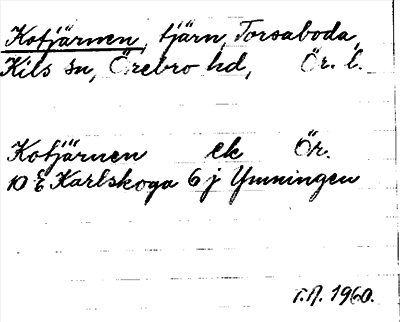 Kotjärnen, tjärn, Torsaboda,
Kils sn, Örebro hd, Ör. l.
Kotjärnen ek Ör.
10 E Karlskoga 6 j Ymningen
T.A. 1960.